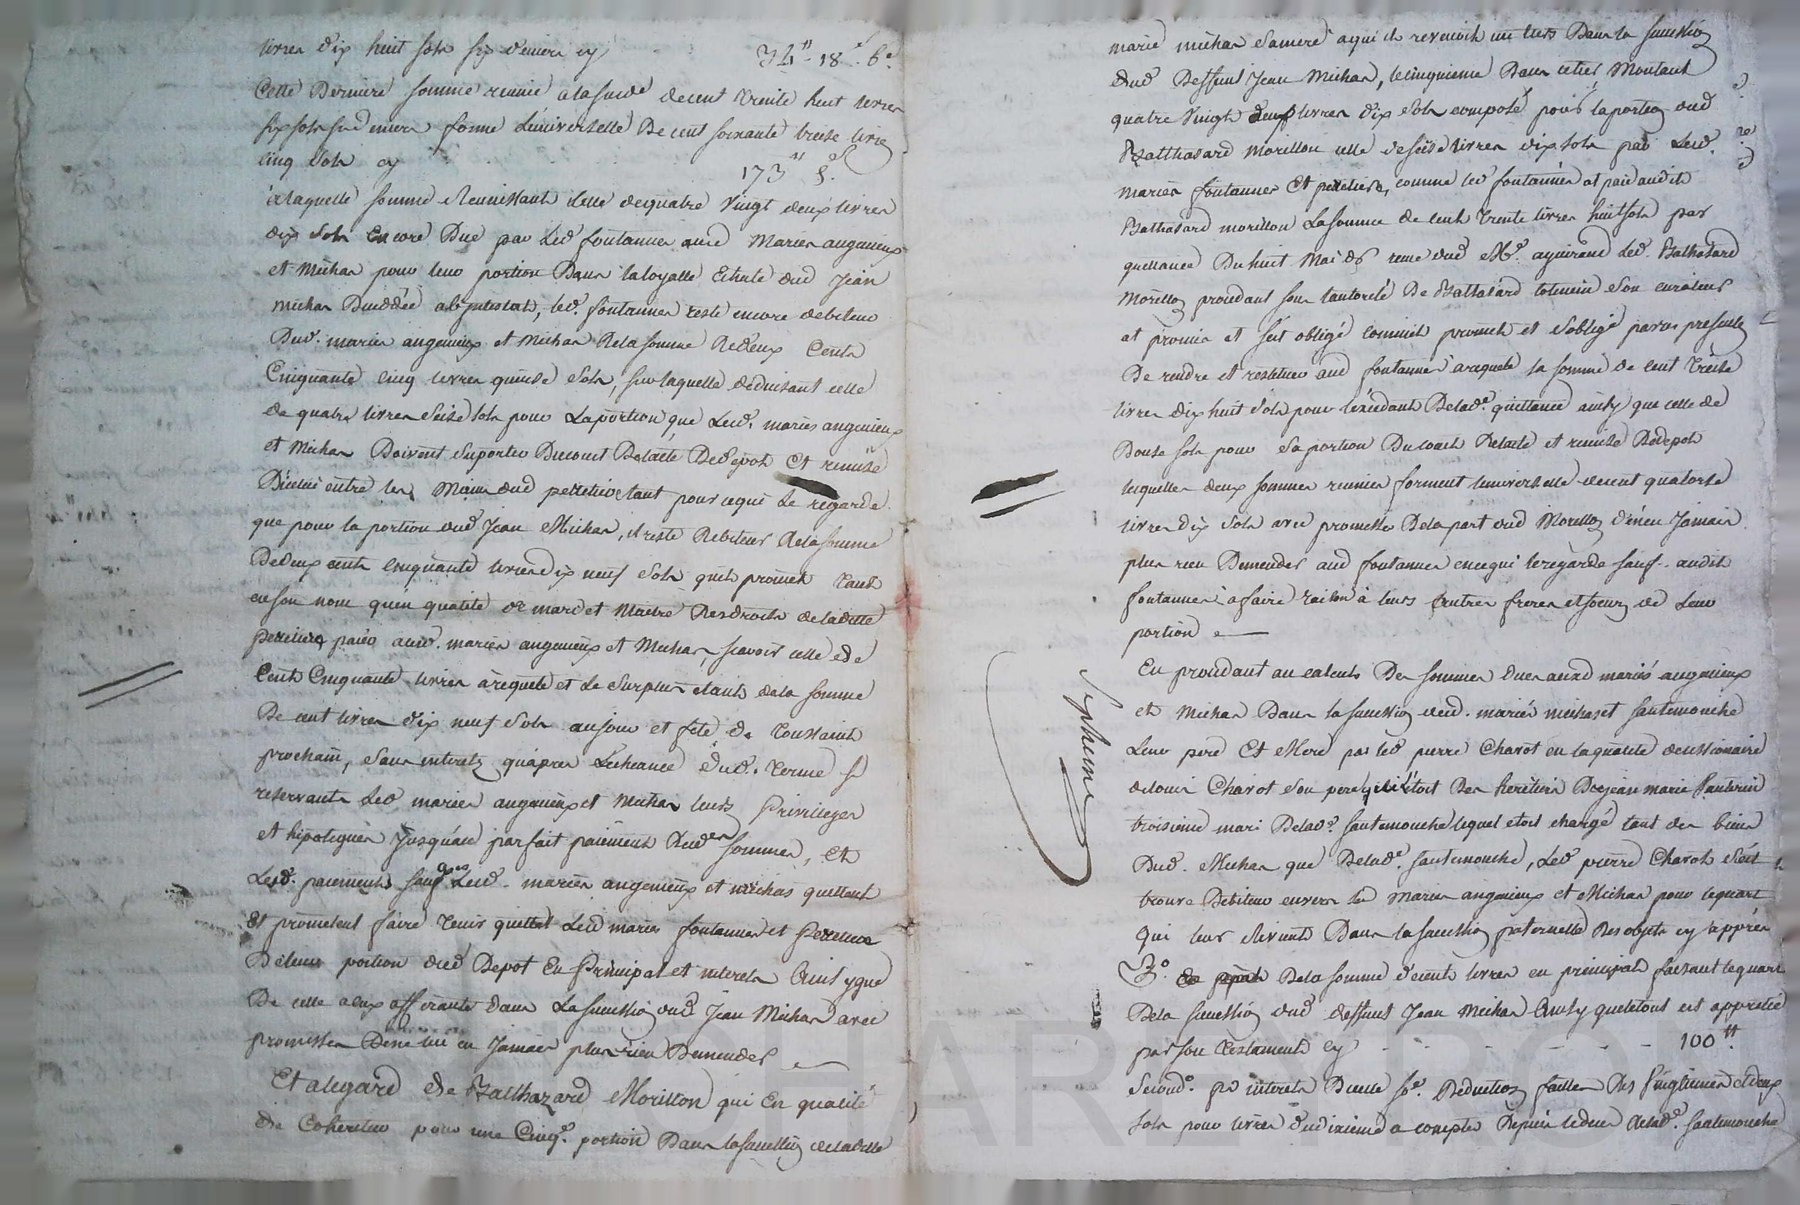 livres dix huit sols six deniers cy 34ᵗᵗ 18ˢ 6ᵈ
Cette Derniere somme reunie a la susde de cent trente huit livres
six sols six deniers forme l'universelle De cent soixante treise livres
cinq sols cy 173ᵗᵗ 5ˢ
a laquelle somme Reunissant celle de quatre Vingt deux livres
dix sols Encore Due par Led fontannes aud Maries angenieux
et Michas pour leur portion Dans la loyalle Echute dud Jean
michas Décédée abjntestats, led. fontannes reste encore debiteur
Dud. maries angenieux et Michas De la somme De deux Cents
Cinquante cinq livres quinse sols, sur laquelle deduisant celle
de quatre livres seise sols pour La portion que Lesd. maries angenieux
et Michas Doivent suporter Du coust De lacte De depot et remise
D'icelui entre les Mains dud pelletier tant pour ce qui Le regarde
que pour la portion dud Jean Michas, il reste Debiteur De la somme
De deux cents cinquante livres dix neuf sols quil promet tant
en son nom qu'en qualité de mari et Maitre Des droits de ladite
pelletier paier aud. maries angenieux et Michas, scavoir celle de
Cent Cinquante livres a requete et Le Surplus etant de la somme
De cent livres dix neuf sols au jour et fete de toussaint
prochain, sans interets qu'apres L'echeance dud. terme se
reservants Led maries angenieux et Michas leurs Privileges
et hipoteques Jusqu'au parfait paiement Desd sommes, et
Lesd. paiements faits Lesd. maries angenieux et michas quittent
Et promettent faire tenir quittes Lesd maries fontannes et Pelletier
De leur portion dud Depot En Principal et interets Ainsy que
De celle a eux afferante dans La succession dud Jean Michas avec
promesses De ne lui en Jamais plus rien Demender
Et a legard de Balthazard Morillon qui En qualité
de Coheritier pour une Cinqe. portion Dans la succession de ladite
marie michas sa mere a qui il revenoit un tiers Dans la succession
dud Deffunt Jean Michas, le cinquieme Dans ce tiers Montant
quatre Vingt deux livres dix sols composé pour la portion dud
Balthasard Morillon celle de seise livres dix sols par Lesd.
maries fontannes Et pelletier, comme led fontannes at paié audit
Balthasard morillon La somme de cent trente livres huit sols par
quittance Du huit Mai dr reçue dud Me. ayuirand Led. Balthasard
Morillon procedant sous l'autorité De Balthasard son curateur
at promis et s'est obligé comme il promet et s'oblige par ces presentes
De rendre et restituer aud fontannes a requete la somme de cent treise
livres dix huit sols pour l'excedant De lad. quittance ainsy que celle de
Douse sols pour sa portion Du coust De lacte et remise De depot
lesquelles deux sommes reunies forment l'universelle de cent quatorse
livres dix sols avec promesses De la part dud Morillon d'en Jamais
plus rien Demender aud fontannes en ce qui le regarde sauf audit
fontannes a faire raison à leurs autres freres et soeurs de Leur
portion
En procedant au calculs Des sommes dues auxd mariés angenieux
et Michas Dans la succession desd. mariés michas et sautemouche
Leur pere Et Mere par led pierre Charot en la qualité de cessionnaire
de louis Charot son pere qui l'étoit Des heritiers De jean marie Pautrin
troisieme mari De lad. sautemouche lequel etoit chargé tant des biens
Dud. Michas que De lad. sautemouche, Led pierre Charot s'est
trouve Debiteur envers les Maries angenieux et Michas pour le quart
Qui leur Revient Dans la succession paternelle Des objets cy apprés
De la somme de cent livres en principal faisant le quart
De la succession dud deffunt Jean Michas Ainsy que le tout est apprecié
par son testament cy 100ᵗᵗ
Second. pr interets D'icelle se. Deduction faitte Des Vingtiemes et deux
sols pour livres du dixieme a compter Depuis le deces De lad. sautemouche
Sepheme